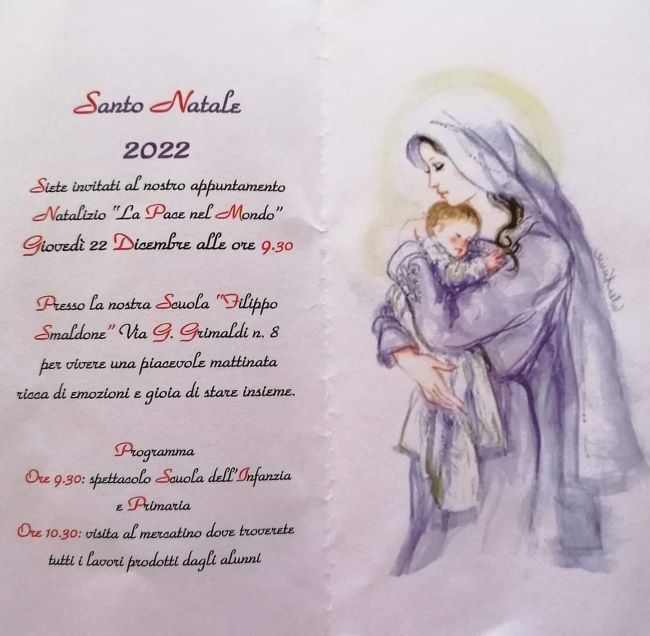 Santo Natale
2022
Siete invitati al nostro appuntamento
Natalizio "La Pace nel Mondo"
Giovedì 22 Dicembre alle ore 9.30
Presso la nostra Scuola "Filippo
Smaldone" Via G. Grimaldi n. 8
per vivere una piacevole mattinata
ricca di emozioni e gioia di stare insieme.
Programma
Ore 9.30: spettacolo Scuola dell'Infanzia
e Primaria
Ore 10.30: visita al mercatino dove troverete
tutti i lavori prodotti dagli alunni